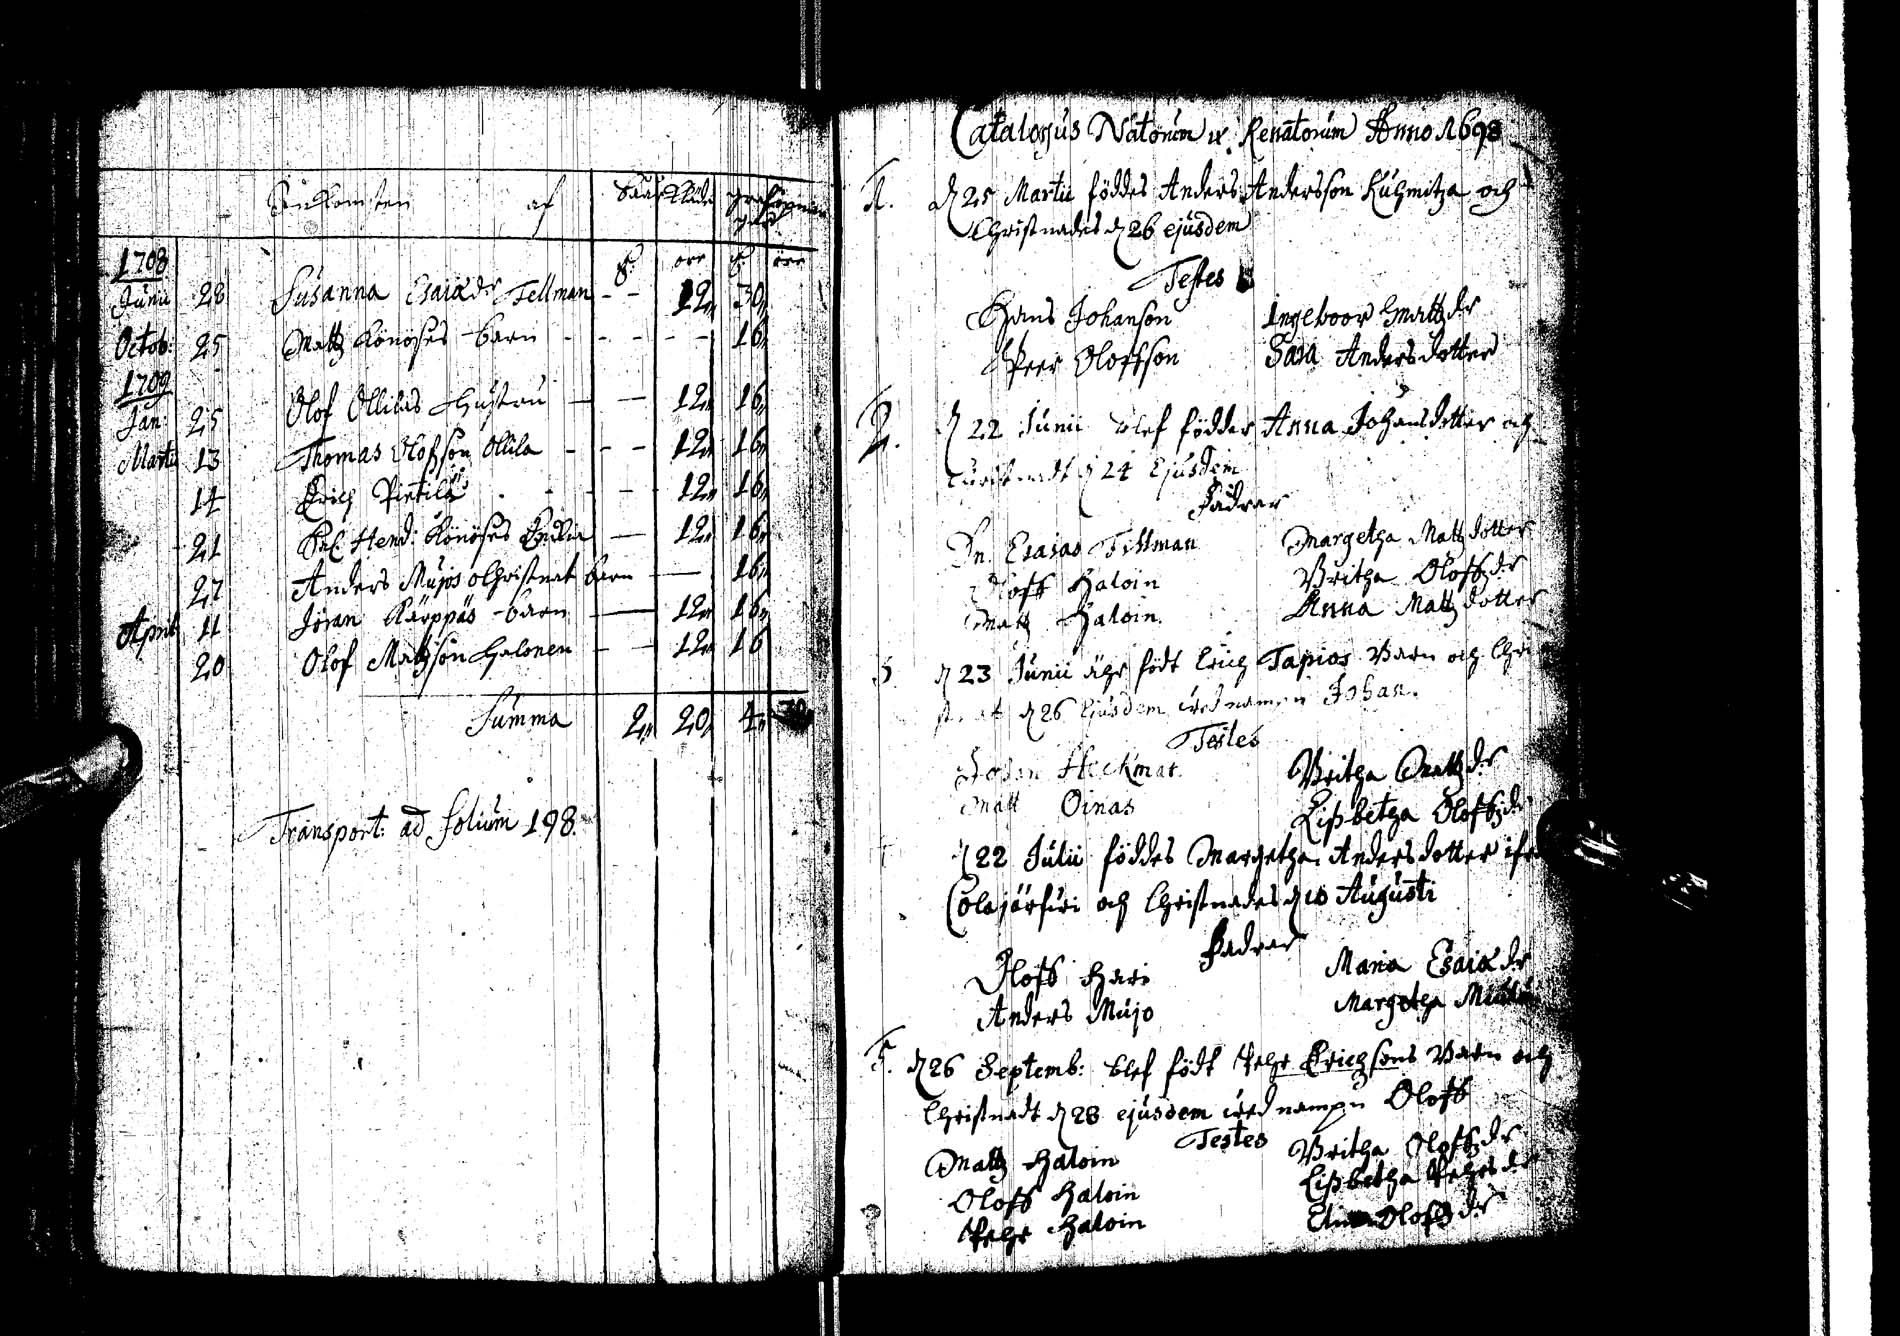 Inkomsten af Baar Kläde
1708 öre öre
Junii 28 Susanna Esaiædr Tellman - - 12„ 30„
Octob: 25 Matz Könöses barn - - - - - 16„
1709
Jan: 25 Olof Ollilas Hustru - - 12„ 16„
Marti 13 Thomas Olofson Ollila - - - 12„ 16„
14 Erich Pietilä - - - - 12„ 16„
21 Hend: Könöses - 12„ 16„
27 Anders Mujos oChristnat barn - 16„
April 11 Jöran Kärppäs barn - 12„ 16„
20 Olof Matzson Halonen - - 12„ 16
Summa 2„ 20„ 4„
Transport: ad folium 198.
Catalogus Natorum & Renatorum Anno 1698
1. d 25 Martii föddes Anders Andersson Kuhmitza och
Christnades d 26 ejusdem
Testes
Hans Johanson Ingeboor Mattzdr
Peer Oloffson Sara Andersdotter
2. d 22 Junii blef födder Anna Johansdotter och
Christnadt d 24 Ejusdem
Fadrar
Dn. Esaias Tillman Margetha Matzdotter
Oloff Haloin Britha Olofsdr
Matz Haloin Anna Matzdotter
3 d 23 Junii ähr födt Erich Tapios Barn och Chri
stnat d 26 Ejusdem wed nampn Johan.
Testes
Johan Heckman Britha Matzdr
Matt Oinas Lissbetha Olofsdr
d 22 Julii föddes Margetha Andersdotter ifrå
Colajärfwi och Christnades d 10 Augusti
Fadrar
Oloff Hari Maria Esaiædr
Anders Mujo Margetha
5. d 26 Septemb: blef födt Pehr Erichsons Barn och
Christnadt d 28 ejusdem wed nampn Oloff
Testes
Matz Haloin Britha Olofsdr
Oloff Haloin Lissbetha Pehrsdr
Pehr Haloin Olofsdr